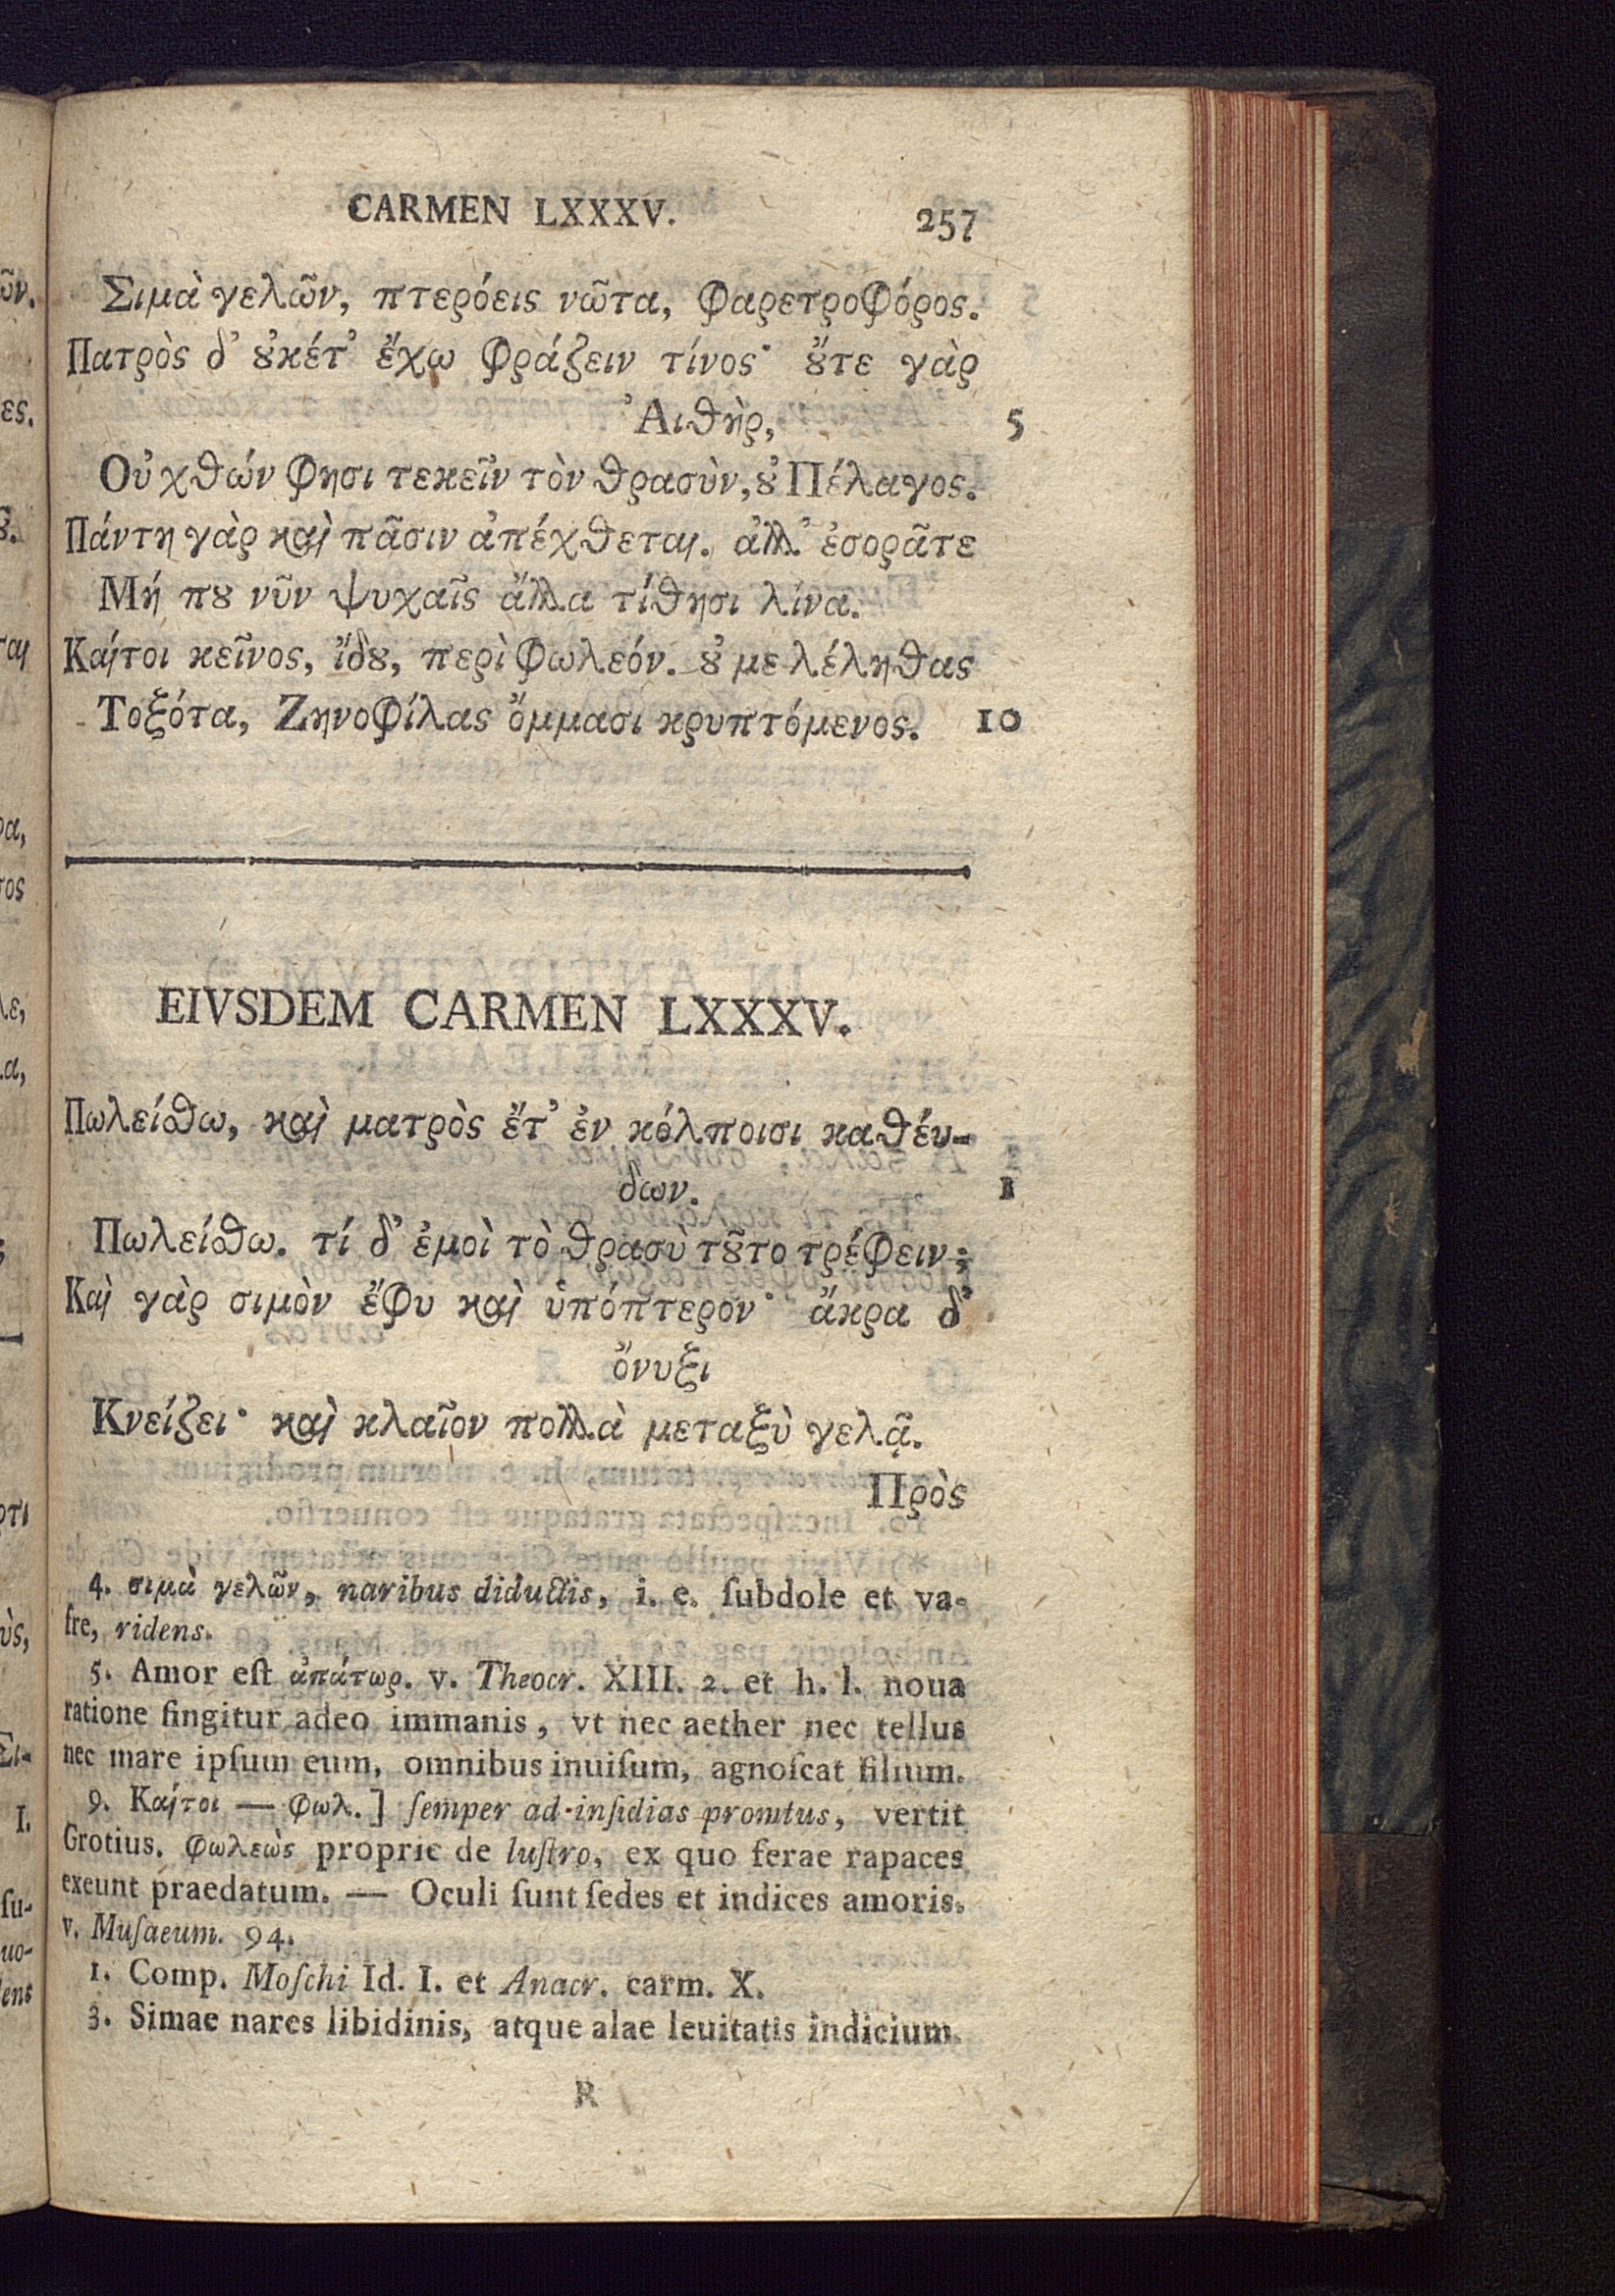 CARMEN LXXXV. 257
Σιμὰ γελῶν, πτερόεις νῶτα, φαρετροφόρος.
Πατρὸς δ᾽ ȣ̓κέτ᾽ ἔχω φράζειν τίνος· ȣ̓́τε γὰρ
᾽Αιθὴρ, 5
Οὐ χθών φησι τεκεῖν τὸν θρασὺν, ȣ̓ Πέλαγος.
Πάντη γὰρ καὶ πᾶσιν ἀπέχθεται. ἀλλ᾽ ἐσορᾶτε
Μή πȣ νῦν ψυχαῖς ἄλλα τίθησι λίνα.
Καίτοι κεῖνος, ἴδȣ, περὶ φωλεόν. ȣ̓ με λέληθας
Τοξότα, Ζηνοφίλας ὄμμασι κρυπτόμενος. 10
EIVSDEM CARMEN LXXXV.
Πωλείθω, καὶ ματρὸς ἔτ᾽ ἐν κόλποισι καθέυ-
δων. 1
Πωλείθω. τί δ᾽ ἐμοὶ τὸ θρασὺ τȣ͂το τρέφειν;
Καὶ γὰρ σιμὸν ἔφυ καὶ ὑπόπτερον· ἄκρα δ᾽
ὄνυξι
Κνείζει· καὶ κλαῖον πολλὰ μεταξὺ γελᾷ.
Πρὸς
4. σιμὰ γελῶν, naribus diductis, i. e. ſubdole et va-
fre, ridens.
5. Amor eſt ἀπάτωρ. v. Theocr. XIII. 2. et h. l. noua
ratione fingitur adeo immanis, vt nec aether nec tellus
nec mare ipſum eum, omnibus inuiſum, agnoſcat filium.
9. Καίτοι — φωλ.] ſemper ad inſidias promtus, vertit
Grotius. φωλεὼς proprie de luſtro, ex quo ferae rapaces
exeunt praedatum. — Oculi ſunt ſedes et indices amoris.
v. Muſaeum. 94.
1. Comp. Moſchi Id. I. et Anacr. carm. X.
3. Simae nares libidinis, atque alae leuitatis indicium.
R